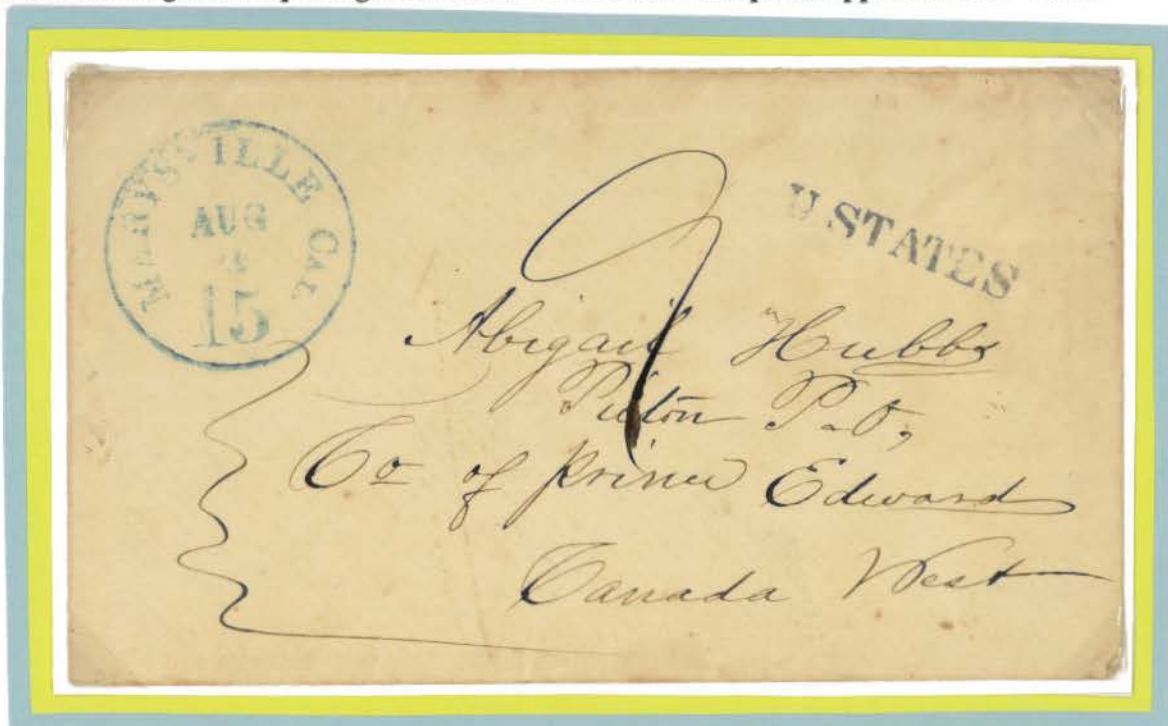 MARYSVILLE CAL
AUG
15
U.STATES
9
Abigail Hubbs
Picton P.O,
Co of Prince Edward
Canada West